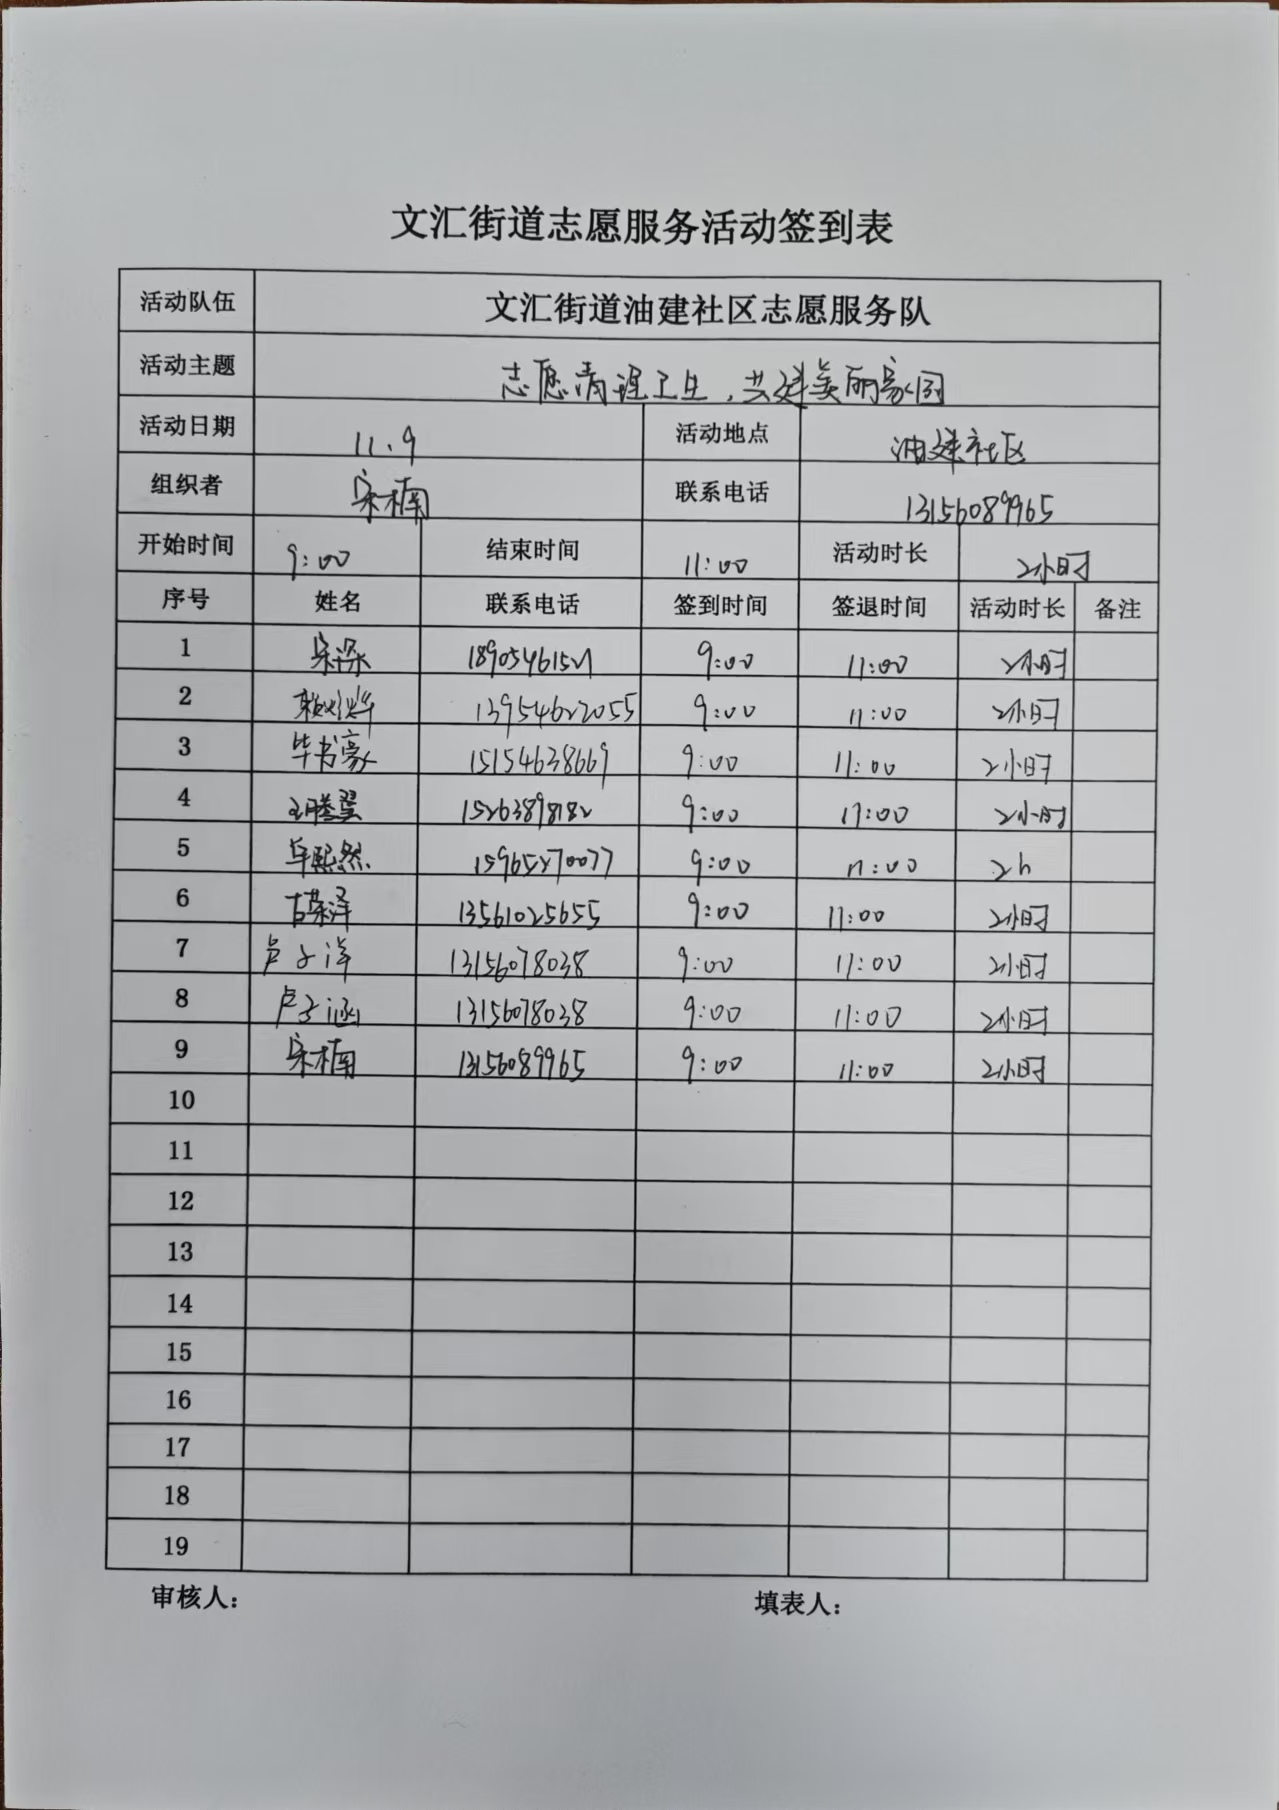 文汇街道志愿服务活动签到表
活动队伍 文汇街道油建社区志愿服务队
活动主题 志愿清理卫生，共建美丽家园
活动日期 11.9 活动地点 油建社区
组织者 宋楠 联系电话 13156089965
开始时间 9:00 结束时间 11:00 活动时长 2小时
序号 姓名 联系电话 签到时间 签退时间 活动时长 备注
1 宋 9:00 11:00 2小时
2 13954622055 9:00 11:00 2小时
3 毕书豪 15154638669 9:00 11:00 2小时
4 王腾翼 15263898182 9:00 11:00 2小时
5 牟熙然 15965270077 9:00 11:00 2h
6 古荣泽 13561025655 9:00 11:00 2小时
7 卢子洋 13156078038 9:00 11:00 2小时
8 卢子涵 13156078038 9:00 11:00 2小时
9 宋楠 13156089965 9:00 11:00 2小时
10
11
12
13
14
15
16
17
18
19
审核人： 填表人：